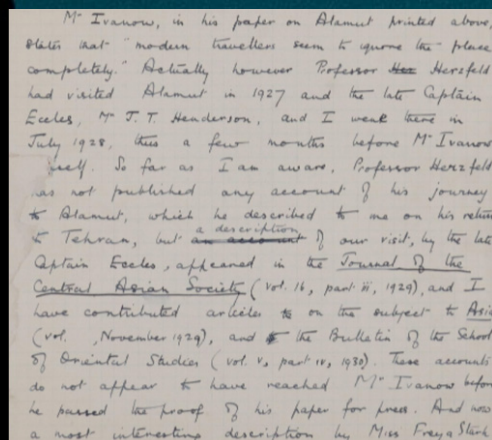 Mr Ivanow, in his paper on Alamut printed above,
states that "modern travellers seem to ignore the place
completely." Actually however Professor Her Herzfeld
had visited Alamut in 1927 and the late Captain
Eccles, Mr J. T. Henderson, and I went there in
July 1928, thus a few months before Mr Ivanow
self. So far as I am aware, Professor Herzfeld
has not published any account of his journey
to Alamut, which he described to me on his return
to Tehran, but an account a description of our visit, by the late
Captain Eccles, appeared in the Journal of the
Central Asian Society (vol. 16, part iii, 1929), and I
have contributed articles to on the subject to Asia
(vol. , November 1929), and to the Bulletin of the School
of Oriental Studies (vol. V, part IV, 1930). These accounts
do not appear to have reached Mr Ivanow before
he passed the proof of his paper for press. And now
a most interesting description by Miss Freya Stark